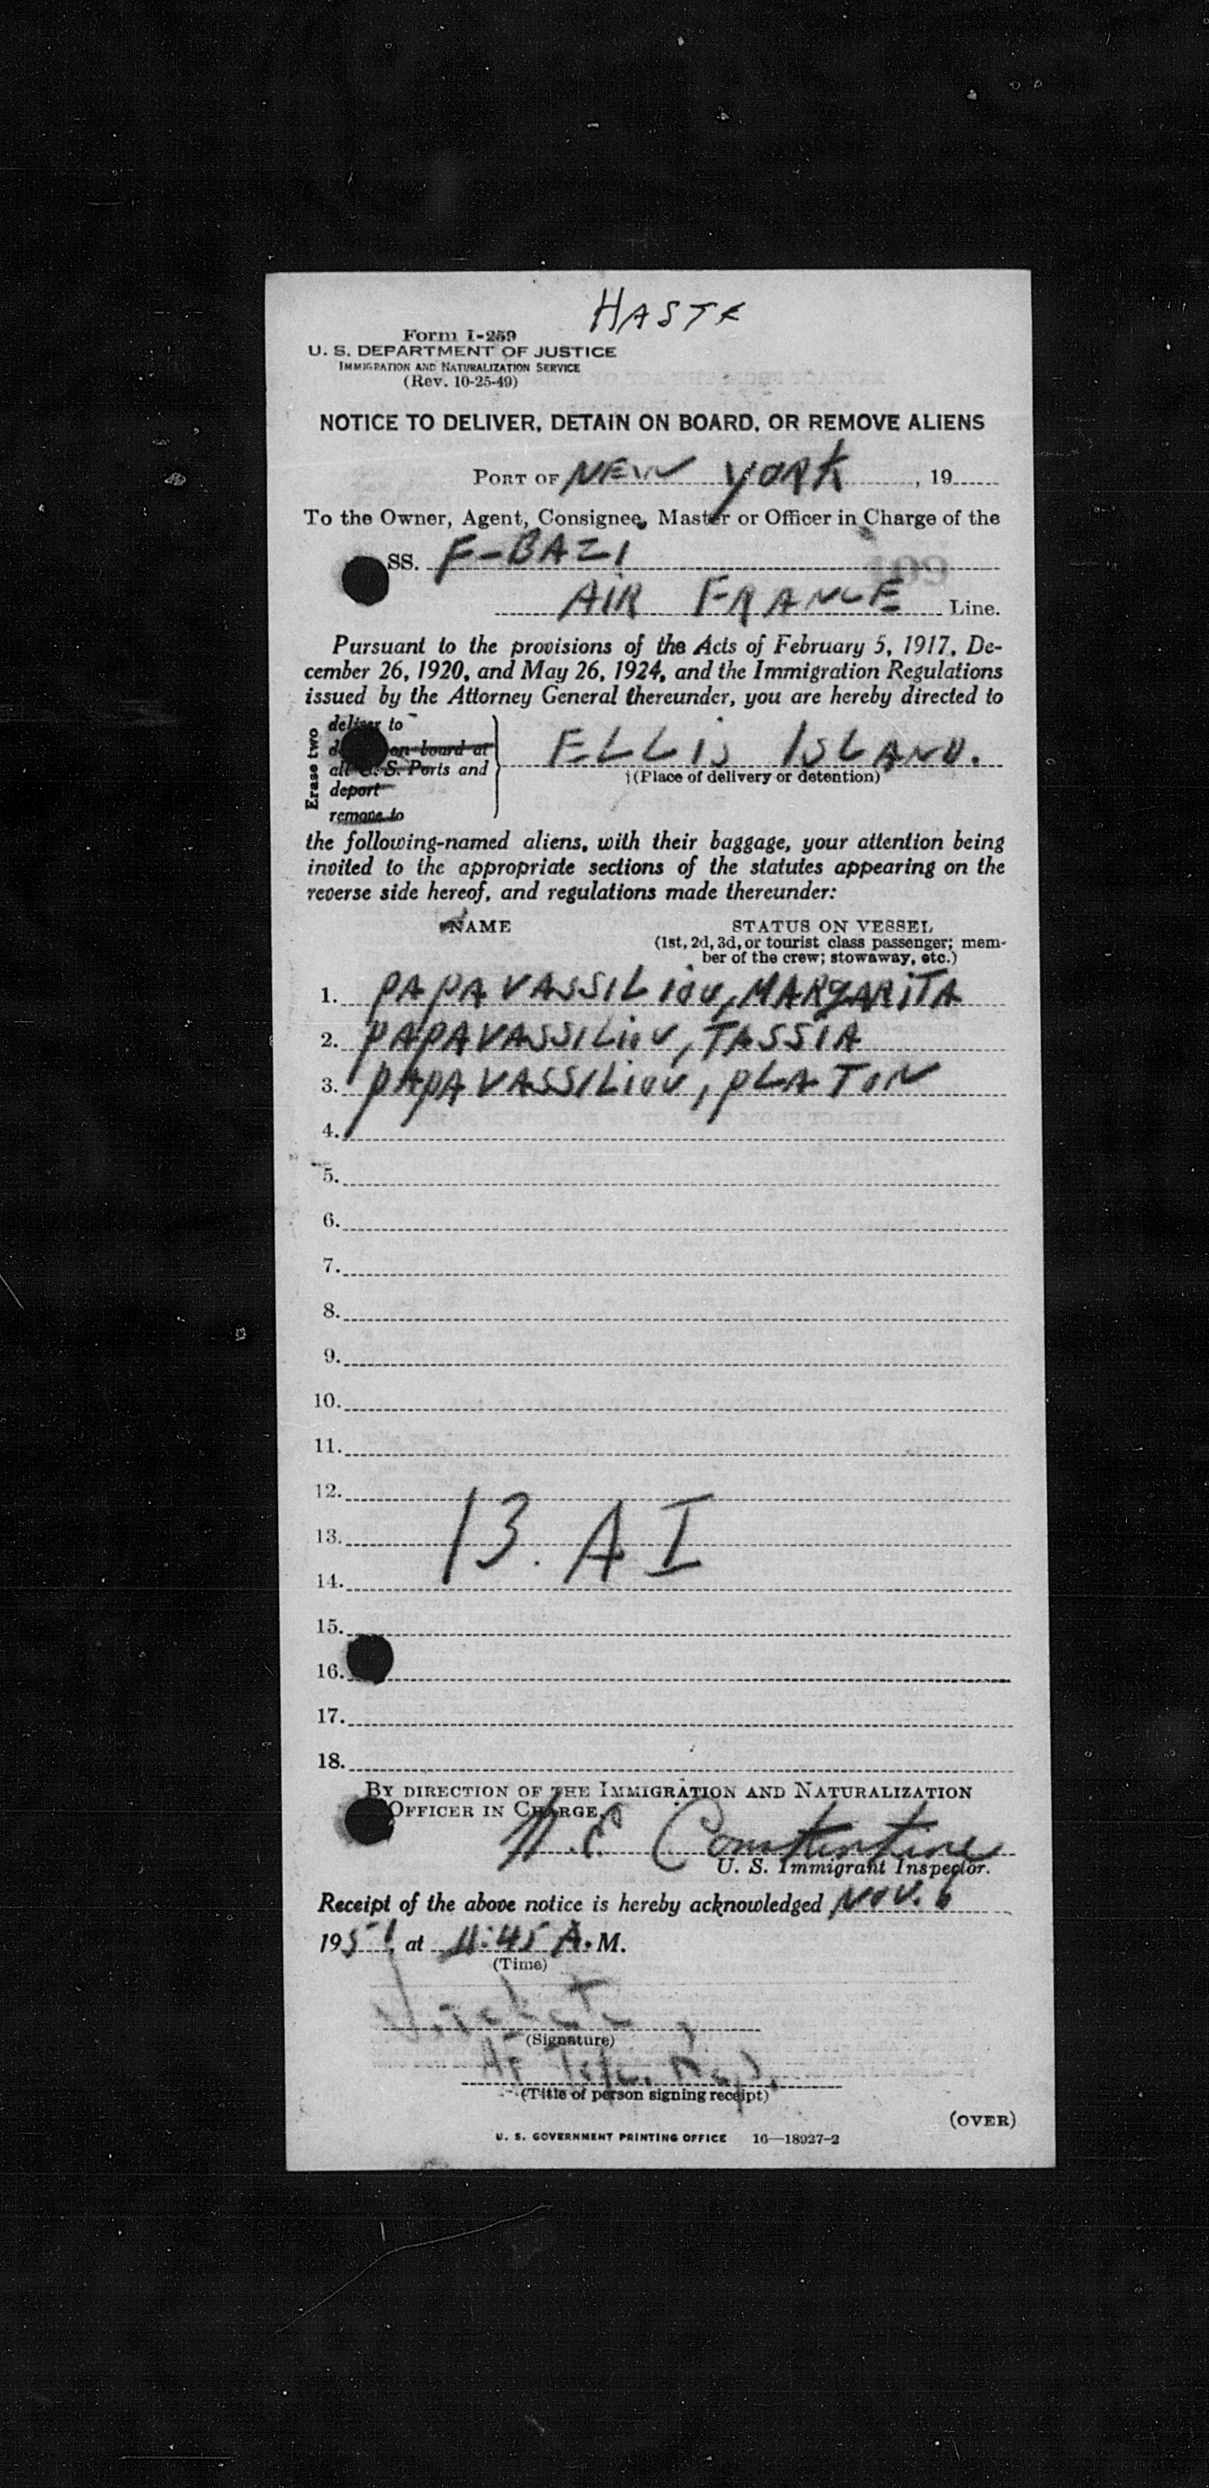 HASTE
Form I-259
U. S. DEPARTMENT OF JUSTICE
IMMIGRATION AND NATURALIZATION SERVICE
(Rev. 10-25-49)
NOTICE TO DELIVER, DETAIN ON BOARD, OR REMOVE ALIENS
PORT OF NEW YORK, 19
To the Owner, Agent, Consignee, Master or Officer in Charge of the
SS. F-BAZI
AIR FRANCE Line.
Pursuant to the provisions of the Acts of February 5, 1917, De-
cember 26, 1920, and May 26, 1924, and the Immigration Regulations
issued by the Attorney General thereunder, you are hereby directed to
Erase two
deliver to
on board at
all U. S. Ports and
deport
remove to
ELLIS ISLAND.
(Place of delivery or detention)
the following-named aliens, with their baggage, your attention being
invited to the appropriate sections of the statutes appearing on the
reverse side hereof, and regulations made thereunder:
NAME STATUS ON VESSEL
(1st, 2d, 3d, or tourist class passenger; mem-
ber of the crew; stowaway, etc.)
1. PAPAVASSILIOU, MARGARITA
2. PAPAVASSILIOU, TASSIA
3. PAPAVASSILIOU, PLATON
4.
5.
6.
7.
8.
9.
10.
11.
12.
13. 13. A I
14.
15.
16.
17.
18.
BY DIRECTION OF THE IMMIGRATION AND NATURALIZATION
OFFICER IN CHARGE.
N. E. Constantine
U. S. Immigrant Inspector.
Receipt of the above notice is hereby acknowledged NOV. 6
1951, at 11:45 A. M.
(Time)
(Signature)
(Title of person signing receipt)
(OVER)
U. S. GOVERNMENT PRINTING OFFICE 16—18927-2